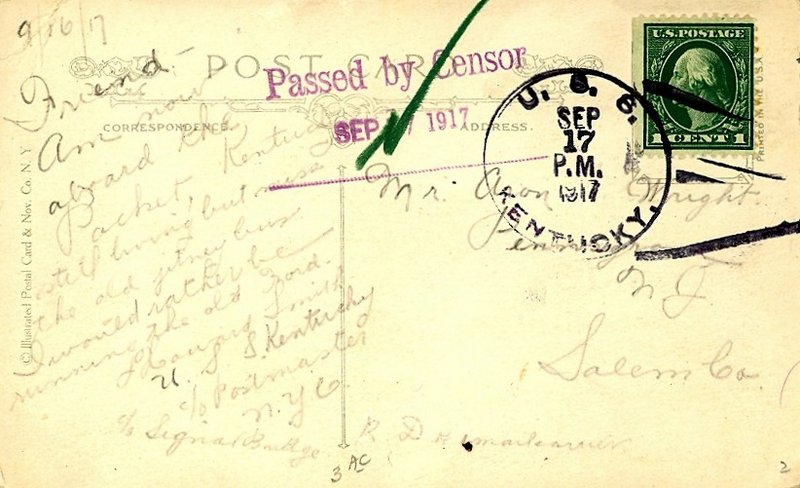 9/16/17
POST CARD
Passed by Censor
SEP 17 1917
CORRESPONDENCE.
ADDRESS.
Friend
Am now
aboard the
Kentucky
Packet,
still living but miss
the old jitney bus
I would rather be
running the old Ford.
Howard Smith
U. S. S Kentucky
c/o Postmaster
N. Y. C.
c/o Signal Bridge
U. S. S.
SEP
17
P.M.
1917
KENTUCKY.
U.S. POSTAGE
1 CENT 1
Mr. Wright
N J
Salem Co.
R D
3 AC
2
© Illustrated Postal Card & Nov. Co. N. Y.
PRINTED IN U.S.A.